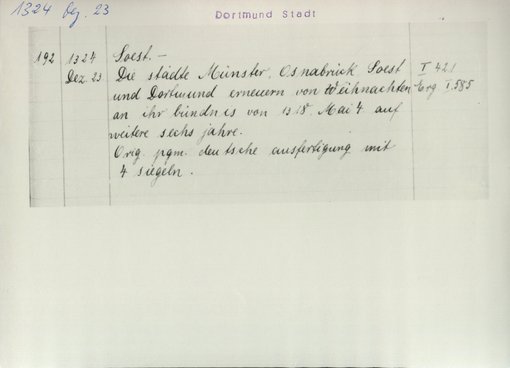 1324 Dez. 23
Dortmund Stadt
192 1324 Soest.-
Dez. 23 Die städte Münster, Osnabrück Soest I 421
und Dortmund erneuern von Weihnachten Erg I.585
an ihr bündnis von 1318 Mai 4 auf
weitere sechs jahre.
Orig. pgm. deutsche ausfertigung mit
4 siegeln.